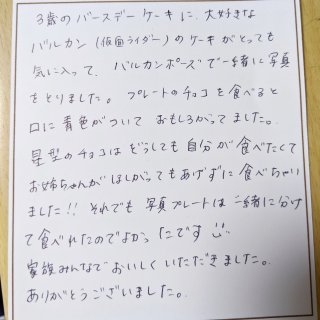 3歳のバースデーケーキに、大好きな
バルカン(仮面ライダー)のケーキがとっても
気に入って、バルカンポーズで一緒に写真
をとりました。プレートのチョコを食べると
口に青色がついて おもしろがってました。
星型のチョコはどうしても自分が食べたくて
お姉ちゃんがほしがってもあげずに食べちゃい
ました!! それでも 写真プレートは一緒に分け
て食べれたのでよかったです
家族みんなでおいしくいただきました。
ありがとうございました。